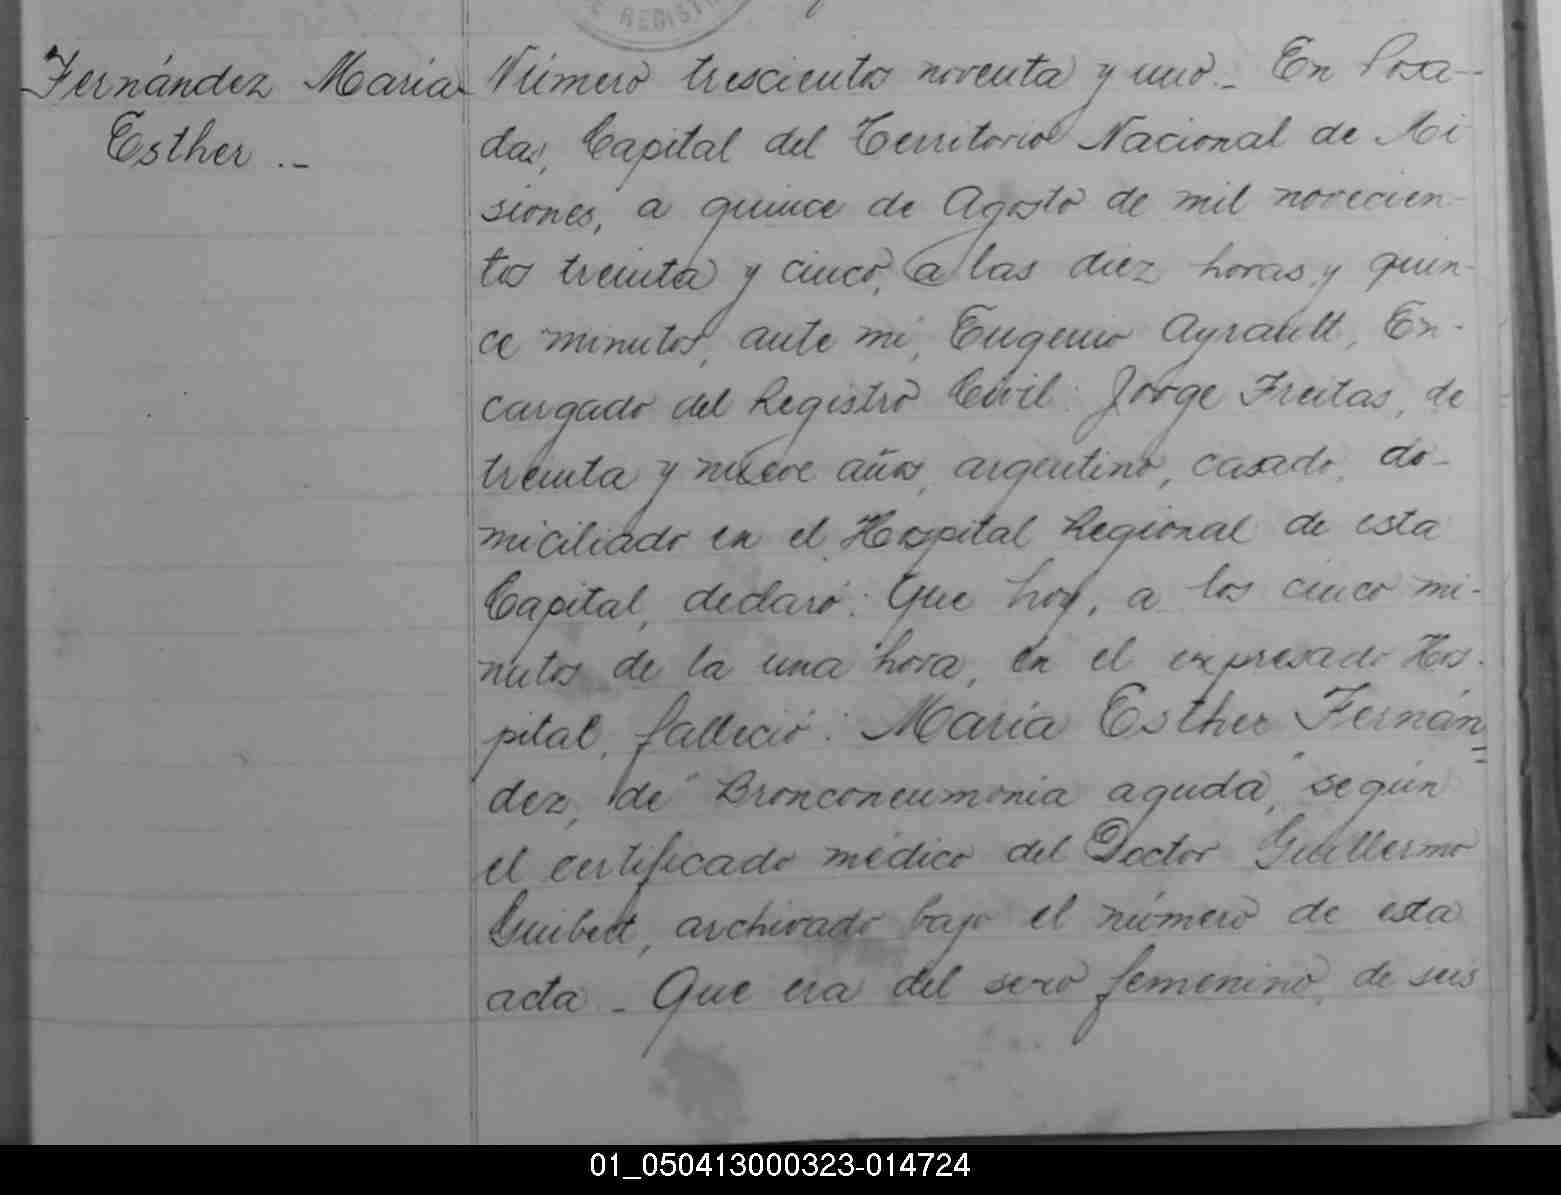 E REGISTR
Fernández María
Esther .-
Número trescientos noventa y uno.- En Posa-
das, Capital del Territorio Nacional de Mi
siones, a quince de Agosto de mil novecien-
tos treinta y cinco, a las diez horas y quin-
ce minutos, ante mi, Eugenio Ayrault, En-
cargado del Registro Civil: Jorge Freitas, de
treinta y nueve años, argentino, casado, do-
miciliado en el Hospital Regional de esta
Capital, declaró: Que hoy, a los cinco mi-
nutos de la una hora, en el expresado Hos-
pital, falleció: María Esther Fernán=
dez, de "Bronconeumonia aguda," según
el certificado médico del Doctor Guillermo
Guibert, archivado bajo el número de esta
acta - Que era del sexo femenino, de seis
01_050413000323-014724